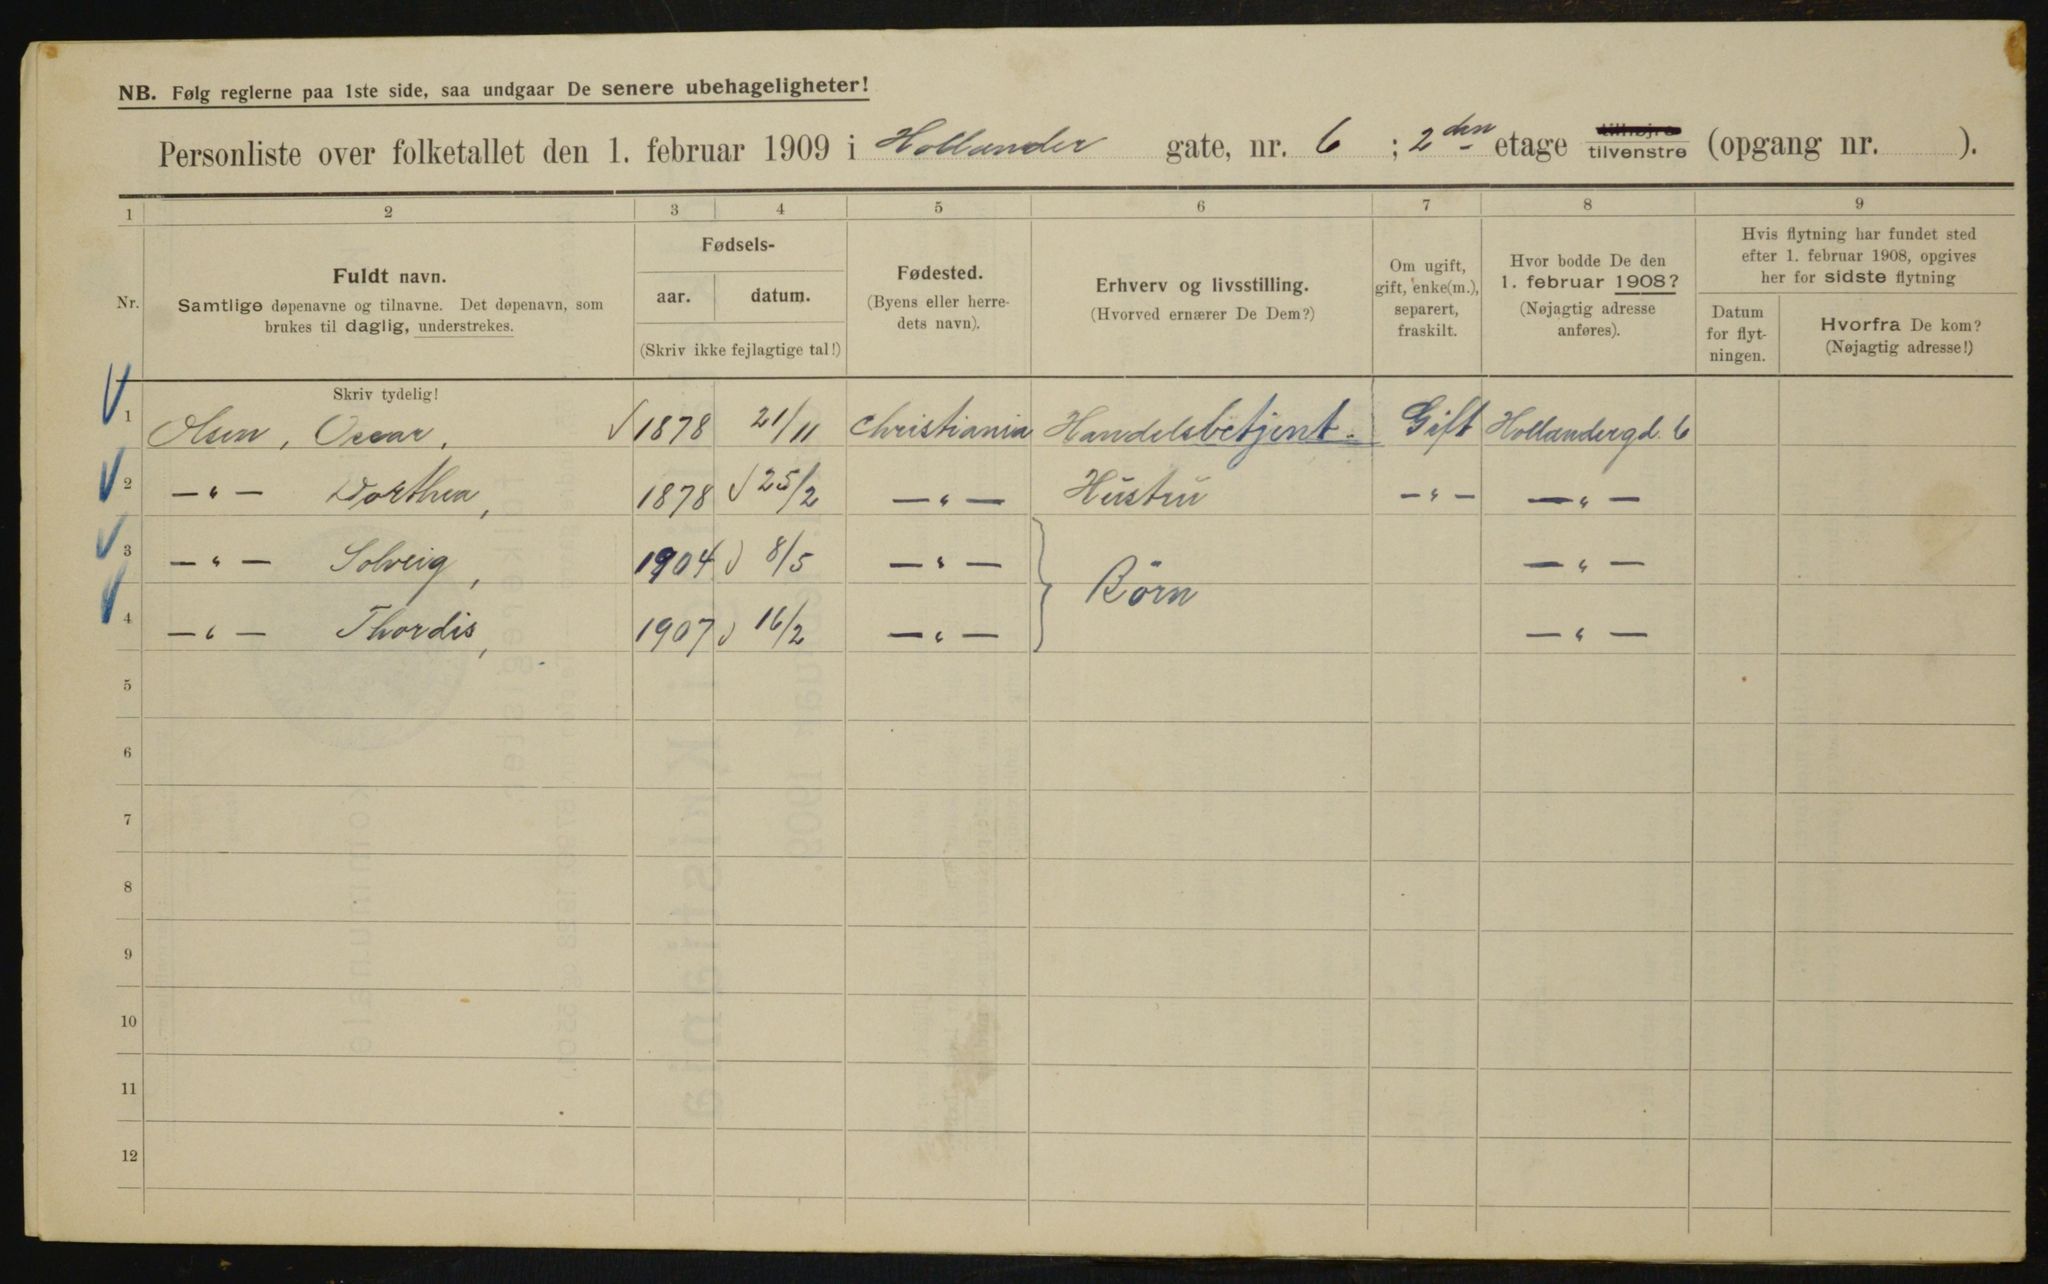 NB. Følg reglerne paa 1ste side, saa undgaar De senere ubehageligheter!
Personliste over folketallet den 1. februar 1909 i Hollander gate, nr. 6 ; 2den etage tilhøjre tilvenstre (opgang nr. ).
1 2 3 4 5 6 7 8 9
Nr.
Fuldt navn.
Samtlige døpenavne og tilnavne. Det døpenavn, som
brukes til daglig, understrekes.
Fødsels-
aar. datum.
(Skriv ikke fejlagtige tal!)
Fødested.
(Byens eller herre-
dets navn).
Erhverv og livsstilling.
(Hvorved ernærer De Dem?)
Om ugift,
gift, enke(m.),
separert,
fraskilt.
Hvor bodde De den
1. februar 1908?
(Nøjagtig adresse
anføres).
Hvis flytning har fundet sted
efter 1. februar 1908, opgives
her for sidste flytning
Datum
for flyt-
ningen.
Hvorfra De kom?
(Nøjagtig adresse!)
Skriv tydelig!
1 Olsen, Oscar, 1878 21/11 Christiania Handelsbetjent. Gift Hollandergd. 6
2 — " — Dorthea, 1878 25/2 — " — Hustru — " — — " —
3 — " — Solveig, 1904 8/5 — " — — " —
Børn
4 — " — Thordis, 1907 16/2 — " — — " —
5
6
7
8
9
10
11
12